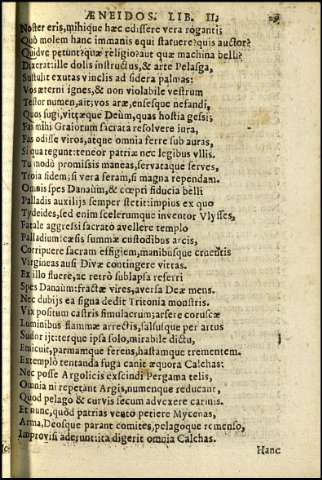 ÆNEIDOS. LIB. II.
Noster eris, mihique hæc edissere vera roganti:
Quò molem hanc immanis equi statuere? quis auctor?
Quidve petunt? quæ religio? aut quæ machina belli?
Dixerat: ille dolis instructus, & arte Pelasga,
Sustulit exutas vinclis ad sidera palmas:
Vos æterni ignes, & non violabile vestrum
Testor numen, ait; vos aræ, ensesque nefandi,
Quos fugi, vittæque Deûm, quas hostia gessi:
Fas mihi Graiorum sacrata resolvere iura,
Fas odisse viros, atque omnia ferre sub auras,
Si qua tegunt: teneor patriæ nec legibus vllis.
Tu modò promissis maneas, servataque serves,
Troia fidem; si vera feram, si magna rependam.
Omnis spes Danaûm, & cœpti fiducia belli
Palladis auxilijs semper stetit: impius ex quo
Tydeides, sed enim scelerumque inventor Vlysses,
Fatale aggressi sacrato avellere templo
Palladium: cæsis summæ custodibus arcis,
Corripuere sacram effigiem, manibusque cruentis
Virgineas ausi Divæ contingere vittas.
Ex illo fluere, ac retrò sublapsa referri
Spes Danaûm: fractæ vires, aversa Deæ mens.
Nec dubijs ea signa dedit Tritonia monstris.
Vix positum castris simulacrum; arsere coruscæ
Luminibus flammæ arrectis, salsusque per artus
Sudor ijt: terque ipsa solo, mirabile dictu,
Emicuit, parmamque ferens, hastamque trementem.
Extemplò tentanda fuga canit æquora Calchas:
Nec posse Argolicis exscindi Pergama telis,
Omnia ni repetant Argis, numenque reducant,
Quod pelago & curvis secum advexere carinis.
Et nunc, quòd patrias vento petiere Mycenas,
Arma, Deosque parant comites, pelagoque remenso,
Improvisi aderunt: ita digerit omnia Calchas.
Hanc